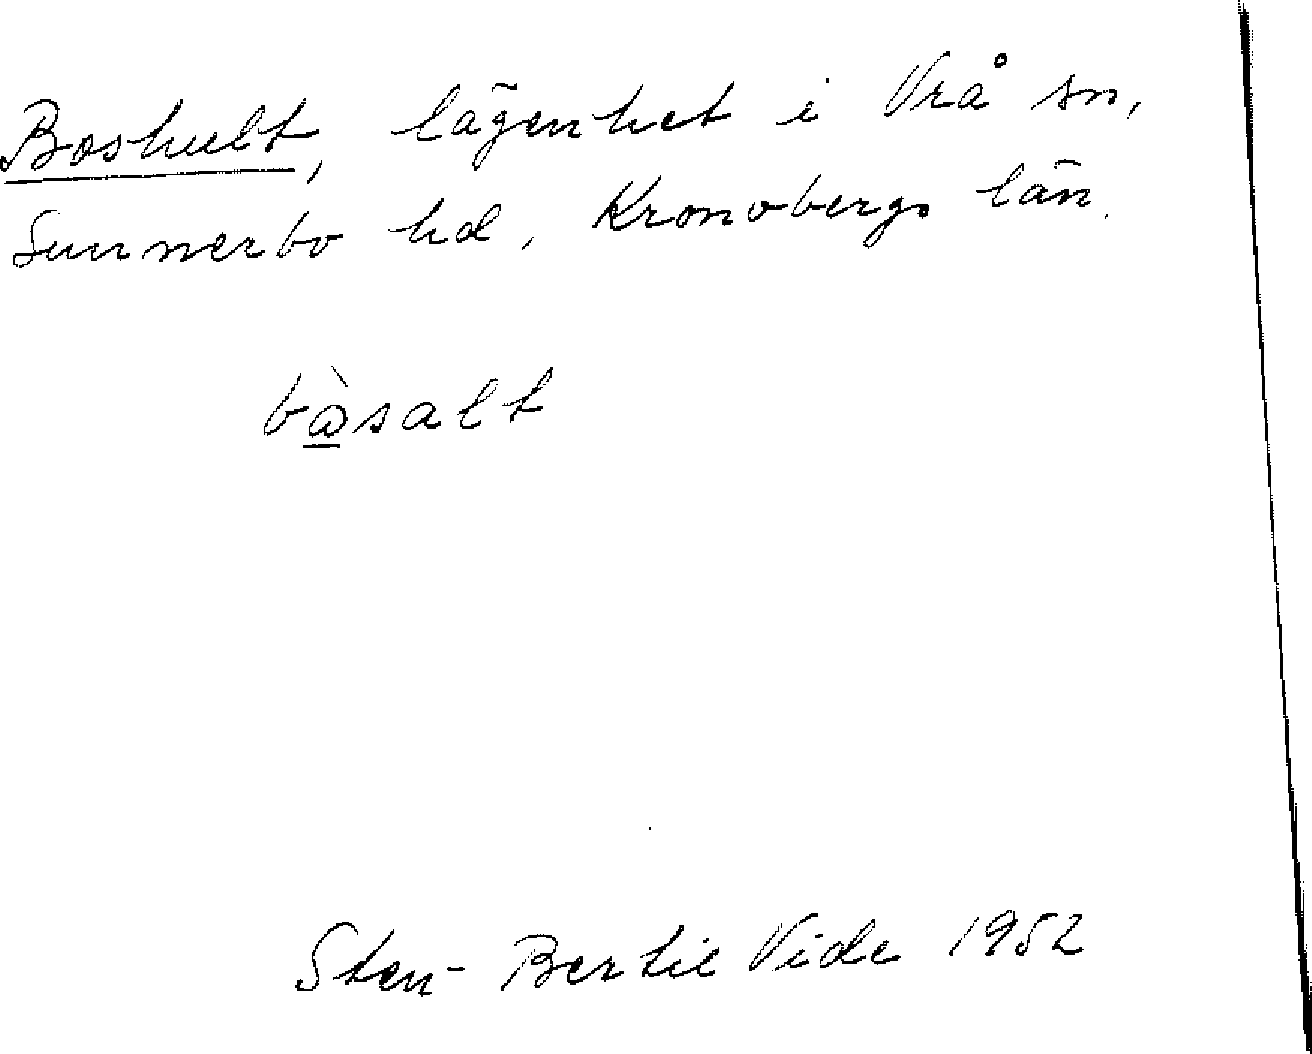 Boshult, lägenhet i Vrå sn,
Sunnerbo hd, Kronobergs län.
bàsalt
Sten-Bertil Vide 1952